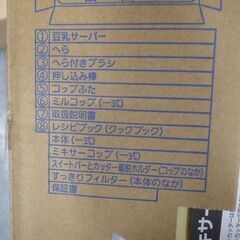 ① 豆乳サーバー
② へら
③ へら付きブラシ
④ 押し込み棒
⑤ コップふた
⑥ ミルコップ（一式）
⑦ 取扱説明書
⑧ レシピブック（クックブック）
本体（一式）
ミキサーコップ（一式）
スイートバーとカッター着脱ホルダー（コップのなか）
すっきりフィルター（本体のなか）
保証書